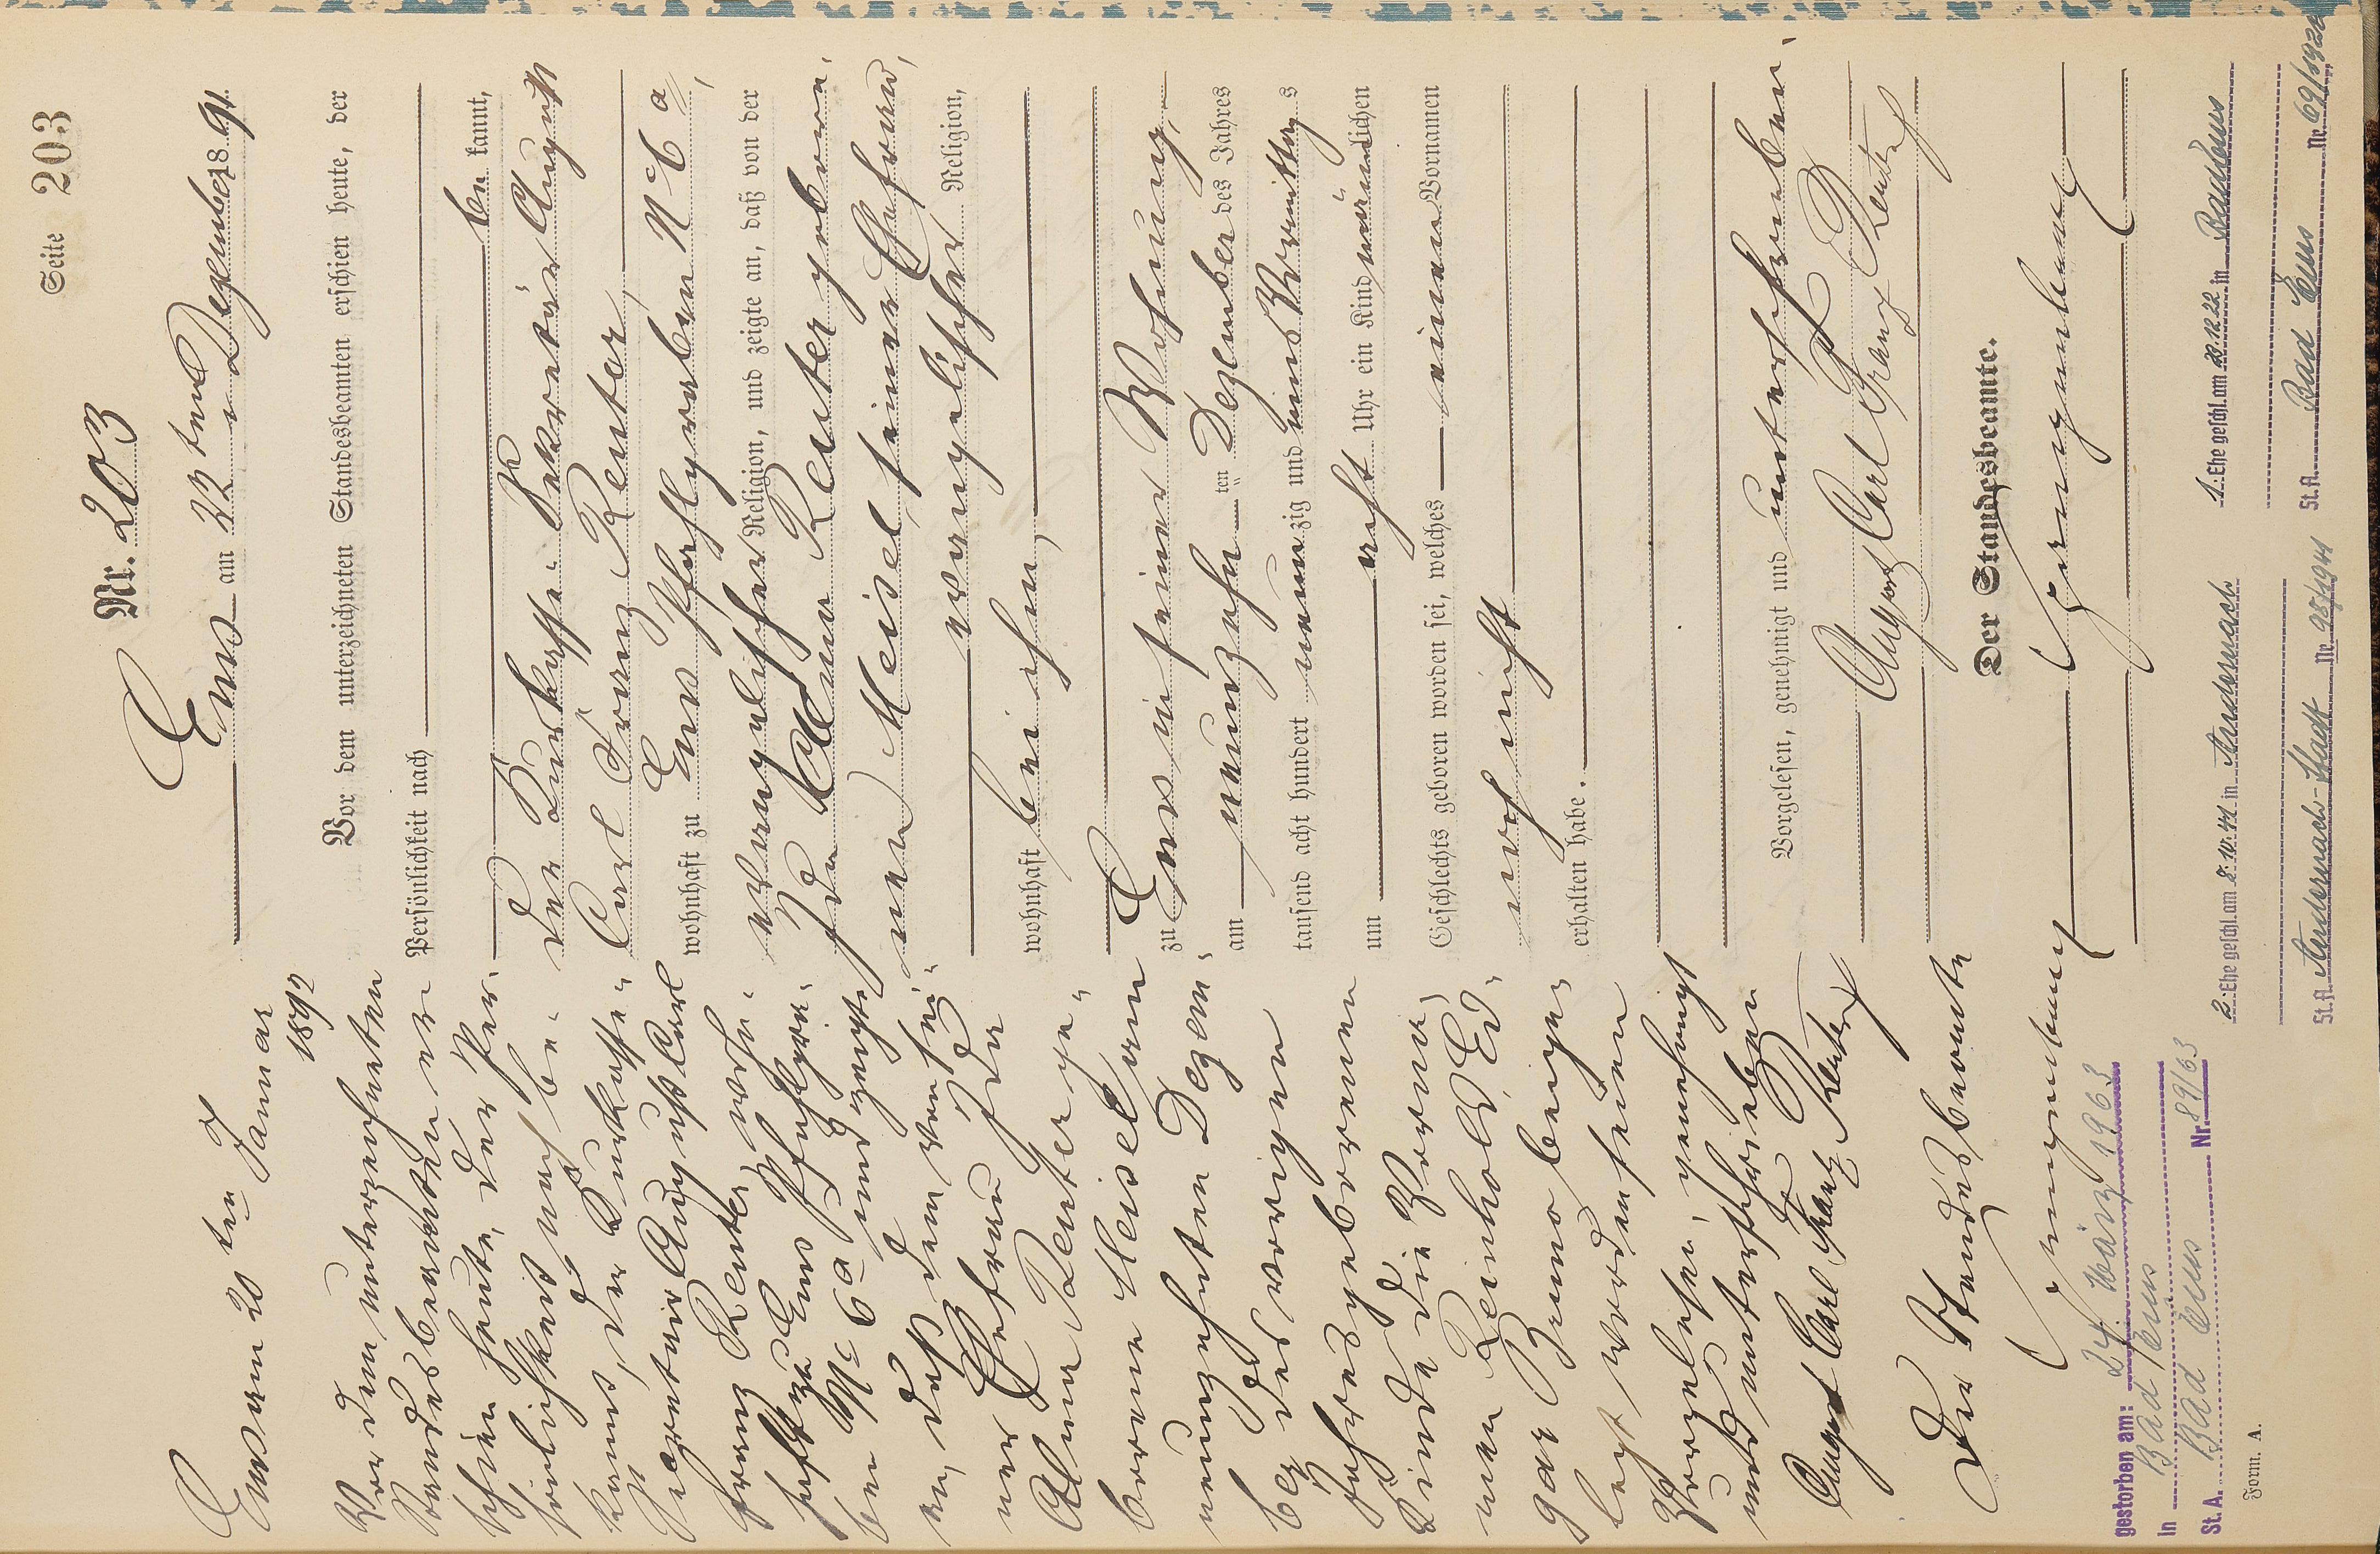 Seite 203
Nr. 203
Ems am 22ten Dezember 18 91.
Vor dem unterzeichneten Standesbeamten erschien heute, der
Persönlichkeit nach
be kannt,
der Kurkasse-Sekretär August
Carl Franz Reuter,
wohnhaft zu Ems Pfahlgraben No 6a,
evangelischer Religion, und zeigte an, daß von der
Ida Alma Reuter gebore-
nen Meisel seiner Ehefrau,
evangelischer Religion,
wohnhaft bei ihm,
zu Ems in seiner Wohnung,
am neunzehn ten Dezember des Jahres
tausend acht hundert neun zig und eins Vormittags
um acht Uhr ein Kind männlichen
Geschlechts geboren worden sei, welches einen Vornamen
noch nicht
erhalten habe.
Vorgelesen, genehmigt und unterschrieben.
August Carl Franz Reuter
Der Standesbeamte.
Ems am 20ten Januar
1892
Vor dem unterzeichneten
Standesbeamten er-
schien heute, der Per-
sönlichkeit nach be-
kannt, der Kurkasse-
Secretair August Carl
Franz Reuter, wohn-
haft zu Ems Pfahlgra-
ben No 6a und zeigte
an, daß dem von sei-
ner Ehefrau Ida
Alma Reuter ge-
borene Meisel am
neunzehnten Dezem-
ber des vorigen
Jahres geborenen
Kinde die Vorna-
men Reinhold Ed-
gar Bruno beige-
legt worden seien
Vorgelesen, genehmigt
und unterschrieben
August Carl Franz Reuter
Der Standesbeamte
gestorben am: 24. März 1963
in Bad Ems
St. A. Bad Ems Nr. 89/63
1. Ehe geschl. am 23.12.22 in Bad Ems
St. A. Bad Ems Nr. 69/1922
2. Ehe geschl. am 8.10.41 in Andernach
St. A. Andernach-Stadt Nr. 98/1941
Form. A.